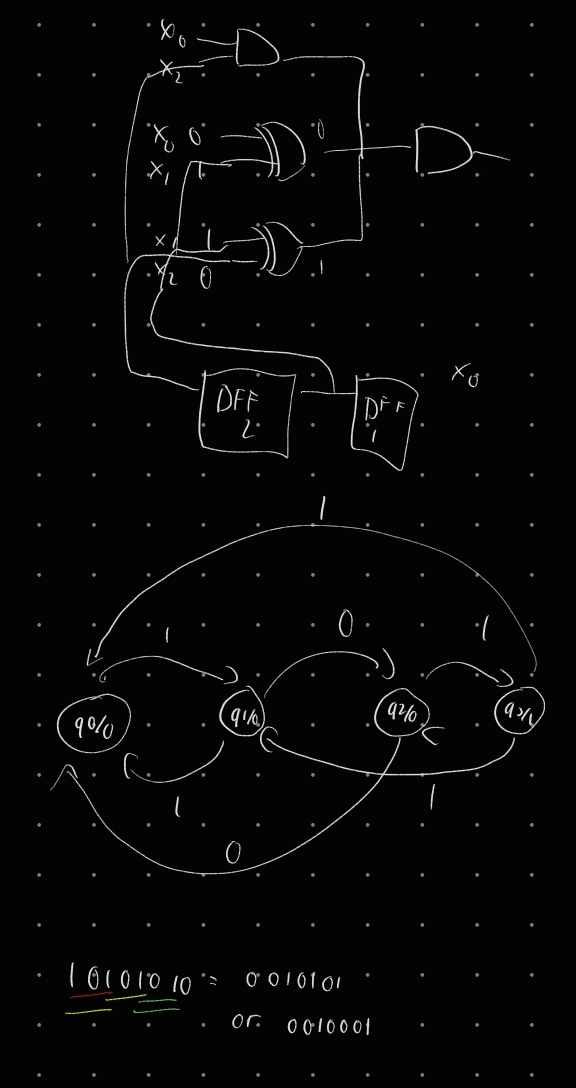 x0
x2
x0 0 0
x1 1
x1 1
x2 0 1
x0
DFF
2
DFF
1
1
1 0 1
q0/0 q1/0 q2/0 q3/1
1 1
0
10101010 = 0010101
or 0010001